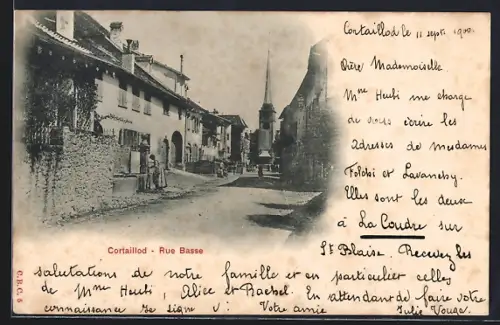 Cortaillod le 11 sept. 1900.
Chère Mademoiselle
Mme Heubi me charge
de vous écrire les
adresses de mesdames
Folchi et Lavanchy.
Elles sont les deux
à La Coudre sur
St Blaise. Recevez les
Cortaillod - Rue Basse
C.B.C. 5
salutations de notre famille et en particulier celles
de Mme Heubi, Alice et Rachel. En attendant de faire votre
connaissance je signe : Votre amie Julie Vouga.